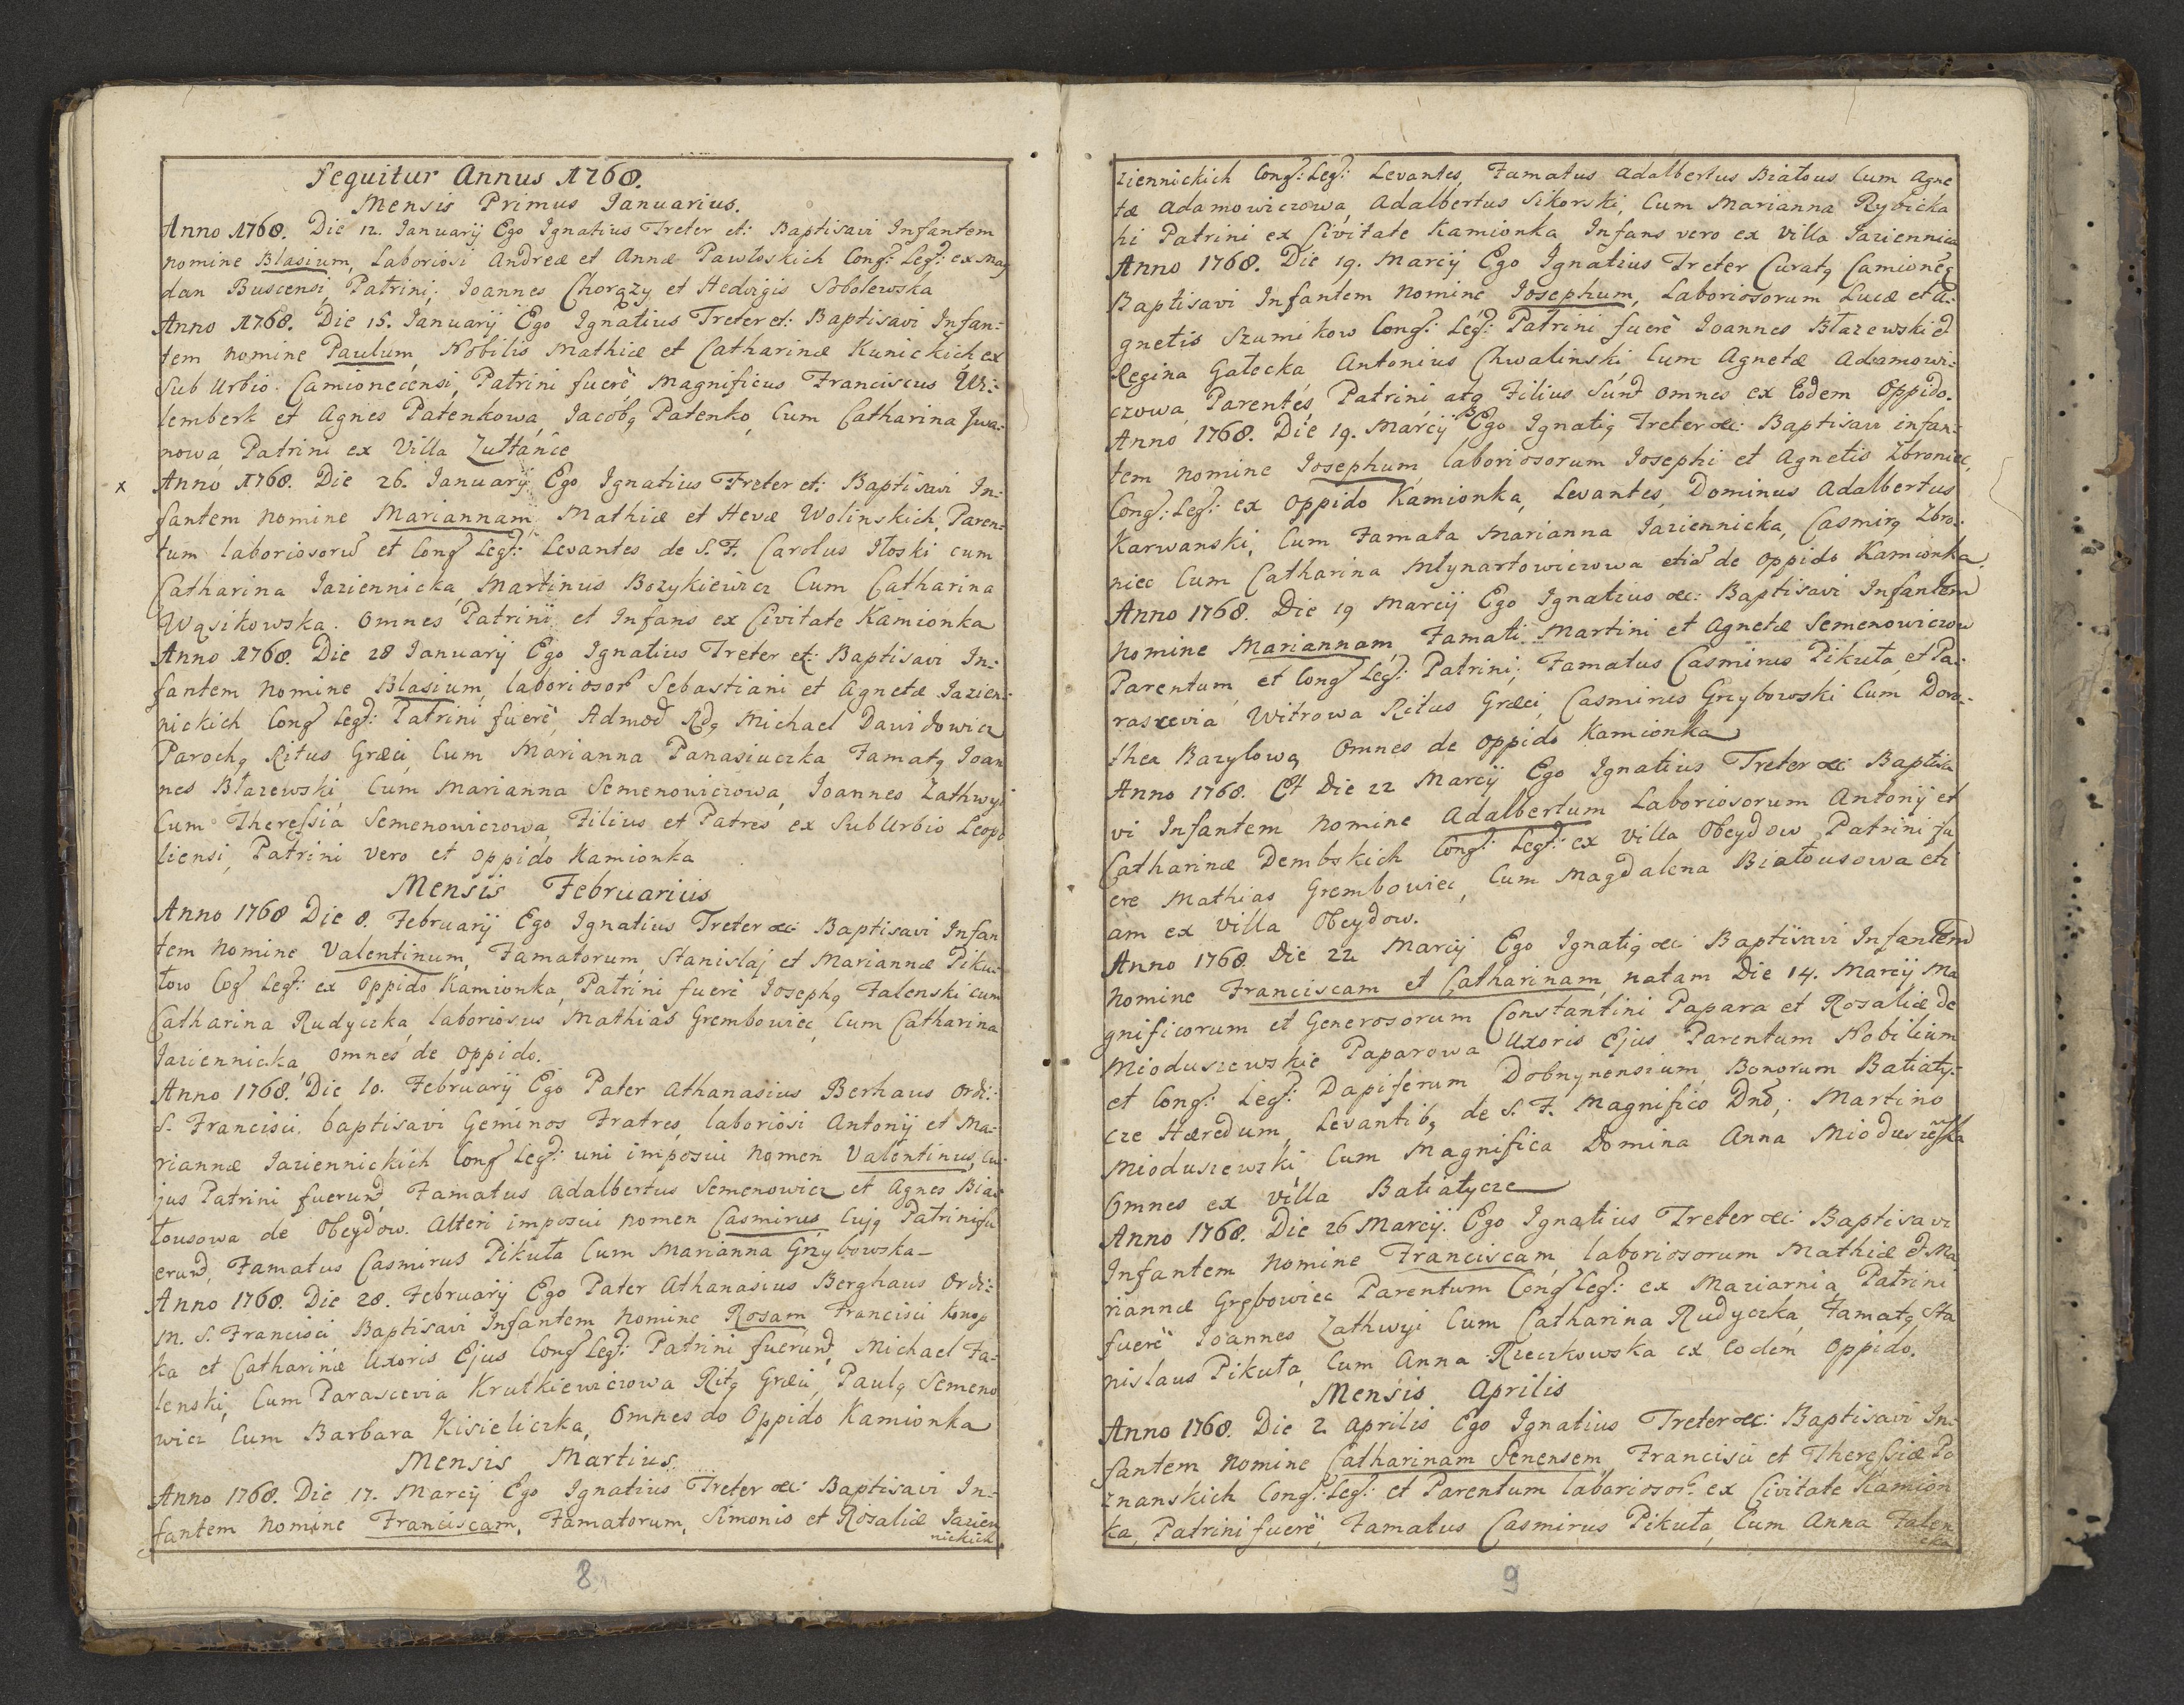 Sequitur Annus 1768.
Mensis Primus Ianuarius.
Anno 1768. Die 12. Ianuarij Ego Ignatius Treter et: Baptisavi Infantem
nomine Blasium, Laboriosi Andreæ et Annæ Pawłoskich Cong: Leg: ex Mag
dan Buscensi, Patrini, Ioannes Chorązy et Hedvigis Sobolewska
Anno 1768. Die 15. Ianuarij Ego Ignatius Treter et: Baptisavi Infan=
tem nomine Paulum, Nobilis Mathiæ et Catharinæ Kunickich ex
Sub Urbio Camionecensi, Patrini fuerē Magnificus Franciscus Wi=
lemberk et Agnes Patenkowa, Iacobq Patenko, Cum Catharina Jwa=
nowa Patrini ex Villa Zułtance
x Anno 1768. Die 26. Ianuarij Ego Ignatius Treter et: Baptisavi In=
fantem nomine Mariannam, Mathiæ et Hevæ Wolinskich, Paren=
tum laboriosorū et Cong Leg: Levantes de S. F. Carolus Iłoski cum
Catharina Iaziennicka, Martinus Bozykiewicz Cum Catharina
Wąsikowska. Omnes Patrini et Infans ex Civitate Kamionka
Anno 1768. Die 28 Ianuarij Ego Ignatius Treter et: Baptisavi In=
fantem Nomine Blasium, laboriosor Sebastiani et Agnetæ Iazien=
nickich Cong Leg: Patrini fuerē, Admod Rdq Michael Dawidowicz
Parochq Ritus Græci, Cum Marianna Panasiuczka Famatq Ioan
nes Błazewski Cum Marianna Semenowiczowa, Ioannes Zathwyi
Cum Theressia Semenowiczowa, Filius et Patres ex SubUrbio Leopo
liensi, Patrini vero et oppido Kamionka
Mensis Februarius
Anno 1768 Die 8. Februarij Ego Ignatius Treter &c: Baptisavi Infan
tem nomine Valentinum, Famatorum, Stanislaj et Mariannæ Piku=
tow Cog Leg: ex Oppido Kamionka, Patrini fuerē Iosephq Falenski cum
Catharina Rudyczka, laboriosus Mathias Grembowiec, Cum Catharina
Iaziennicka, omnes de oppido.
Anno 1768. Die 10. Februarij Ego Pater Athanasius Berhaus Ordi:
S. Francisci, baptisavi Geminos Fratres, laboriosi Antonij et Ma=
riannæ Iaziennickich Cong Leg: uni imposui Nomen Valentinus, Cu
jus Patrini fuerund, Famatus Adalbertus Semenowicz et Agnes Bia=
tousowa de Obeydow. Alteri imposui nomen Casmirus, Cujq Patrini fu
erund, Famatus Casmirus Pikuta Cum Marianna Grzybowska_
Anno 1768. Die 28. Februarij Ego Pater Athanasius Berghaus Ordi=
M. S. Francisci Baptisavi Infantem nomine Rosam, Francisci Konop
ka et Catharinæ Uxoris Ejus Cong Leg: Patrini fuerund, Michael Fa=
lenski, Cum Parascevia Krutkiewiczowa Ritq Græci, Paulq Semeno
wicz Cum Barbara Kisieliczka, Omnes do Oppido Kamionka
Mensis Martius.
Anno 1768. Die 17. Marcij Ego Ignatius Treter &c: Baptisavi In=
fantem nomine Franciscam, Famatorum, Simonis et Rosaliæ Iazien
nickich
8
ziennickich Cong: Leg: Levantes, Famatus Adalbertus Biatous Cum Agne
tæ Adamowiczowa, Adalbertus Sikorski, Cum Marianna Rybicka
hi Patrini ex Civitate Kamionka Infans vero ex Villa Iaziennica
Anno 1768. Die 19. Marcij Ego Ignatius Treter Curatq Camionēq
Baptisavi Infantem nomine Iosephum, Laboriosorum Lucæ et A=
gnetis Szumikow Cong: Leg: Patrini fuerē Ioannes Błazewski et
Regina Gałecka Antonius Chwalinski Cum Agnetæ Adamowi=
czowa, Parentes, Patrini atq Filius Sund omnes ex Eodem Oppido.
Anno 1768. Die 19. Marcij Ego Ignatiq Treter &c: Baptisavi infan=
tem nomine Iosephum, laboriosorum Iosephi et Agnetis Zbroniec,
Cong: Leg: ex oppido Kamionka, Levantes, Dominus Adalbertus
Karwanski, Cum Famata Marianna Iaziennicka, Casmirq Zbro=
niec Cum Catharina Młynartowiczowa etiā de oppido Kamionka.
Anno 1768. Die 19 Marcij Ego Ignatius &c: Baptisavi Infantem
nomine Mariannam, Famati Martini et Agnetæ Semenowiczow
Parentum, et Cong Leg: Patrini, Famatus Casmirus Pikuta, et Pa=
rascevia Witrowa Ritus Græci, Casmirus Grzybowski Cum Doro=
thea Bazylowa, Omnes de oppido Kamionka
Anno 1768. Et Die 22 Marcij Ego Ignatius Treter &c: Baptisa
vi Infantem nomine Adalbertum Laboriosorum Antonij et
Catharinæ Dembskich Cong: Leg: ex villa Obeydow, Patrini fu
ere Mathias Grembowiec, Cum Magdalena Biatousowa eti
am ex villa Obeydow.
Anno 1768. Die 22 Marcij Ego Ignatiq &c: Baptisavi Infantem
nomine Franciscam et Catharinam, natam Die 14. Marcij Ma
gnificorum et Generosorum Constantini Papara et Rosaliæ de
Mioduszewskie Paparowa Uxoris Ejus Parentum Nobilium
et Cong: Leg: Dapiferum Dobnynensium, Bonorum Batiaty=
cze Hæredum, Levantibq de S. F. Magnifico Dnō; Martino
Mioduszewski Cum Magnifica Domina Anna Mioduszewska
Omnes ex villa Batiatycze
Anno 1768. Die 26 Marcij. Ego Ignatius Treter &c: Baptisavi
Infantem nomine Franciscam, laboriosorum Mathiæ et Ma
riannæ Grębowiec Parentum Cong Leg: ex Maziarnia, Patrini
fuerē Ioannes Zathwyi Cum Catharina Rudyczka, Famatq Sta
nislaus Pikuta, Cum Anna Rzeczkowska ex eodem Oppido.
Mensis Aprilis
Anno 1768. Die 2 Aprilis Ego Ignatius Treter &c: Baptisavi In=
fantem nomine Catharinam Senensem, Francisci et Theressiæ Po
znanskich Cong: Leg: et Parentum laborioso͞r ex Civitate Kamion
ka, Patrini fuerē, Famatus Casmirus Pikuta, Cum Anna Falen
cka
9